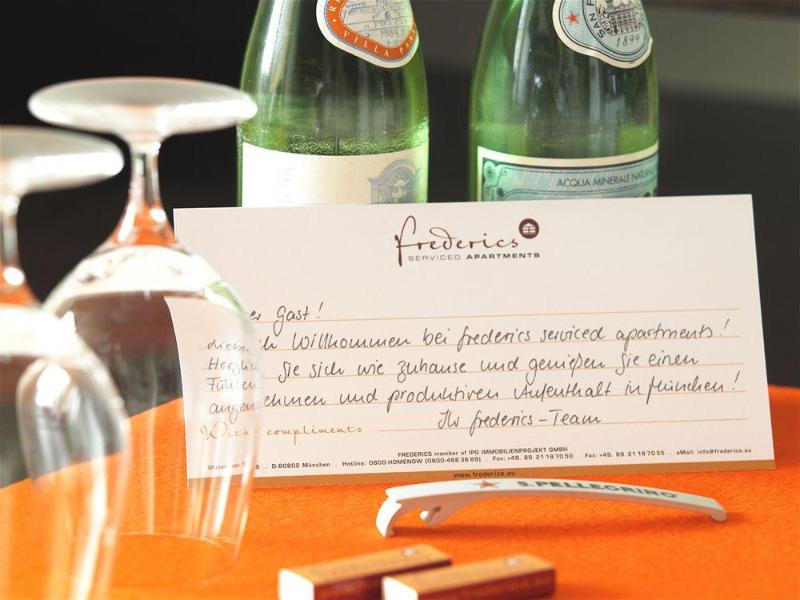 MEDICI
1864
VILLA PA
SAN P
1899
ACQUA MINERALE NATURA
frederics
SERVICED APARTMENTS
Lieber Gast!
Herzlich Willkommen bei frederics serviced apartments!
Fühlen Sie sich wie zuhause und genießen Sie einen
angenehmen und produktiven Aufenthalt in München!
With compliments
Ihr frederics-Team
FREDERICS member of IPG IMMOBILIENPROJEKT GMBH
D-80802 München . Hotline: 0800-HOMENOW (0800-466 36 69) . Fon: +49. 89. 21 18 70 50 . Fax: +49. 89. 21 18 70 55 . eMail: info@frederics.eu
www.frederics.eu
S.PELLEGRINO